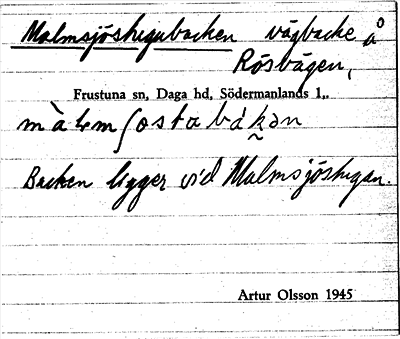 Malmsjöstugubacken vägbacke å
Rösvägen,
Frustuna sn, Daga hd, Södermanlands l.,
Backen ligger vid Malmsjöstugan.
Artur Olsson 1945